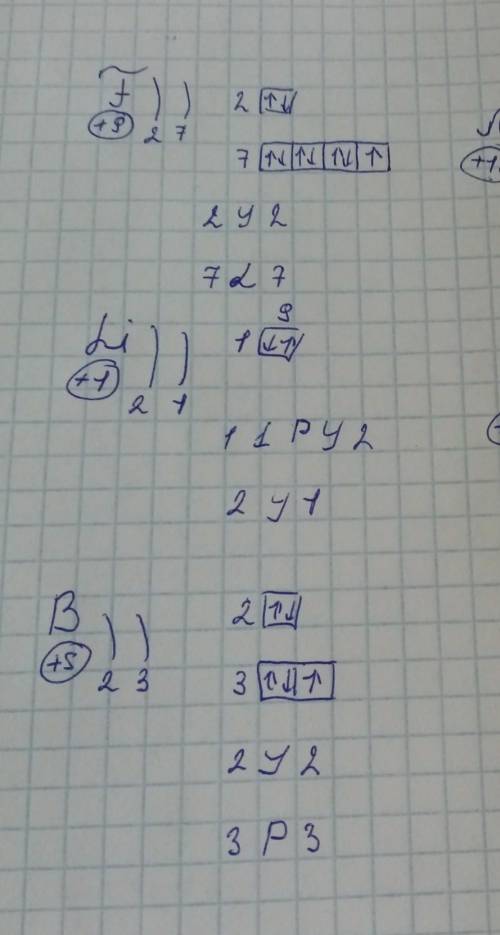 F ) )
+9 2 7
2 ↑↓
7 ↑↓ ↑↓ ↑↓ ↑
2 y 2
7 2 7
Li ) )
+1 2 1
9
1 ↓↑
1 1 P y 2
2 y 1
B ) )
+5 2 3
2 ↑↓
3 ↑↓ ↑
2 y 2
3 P 3